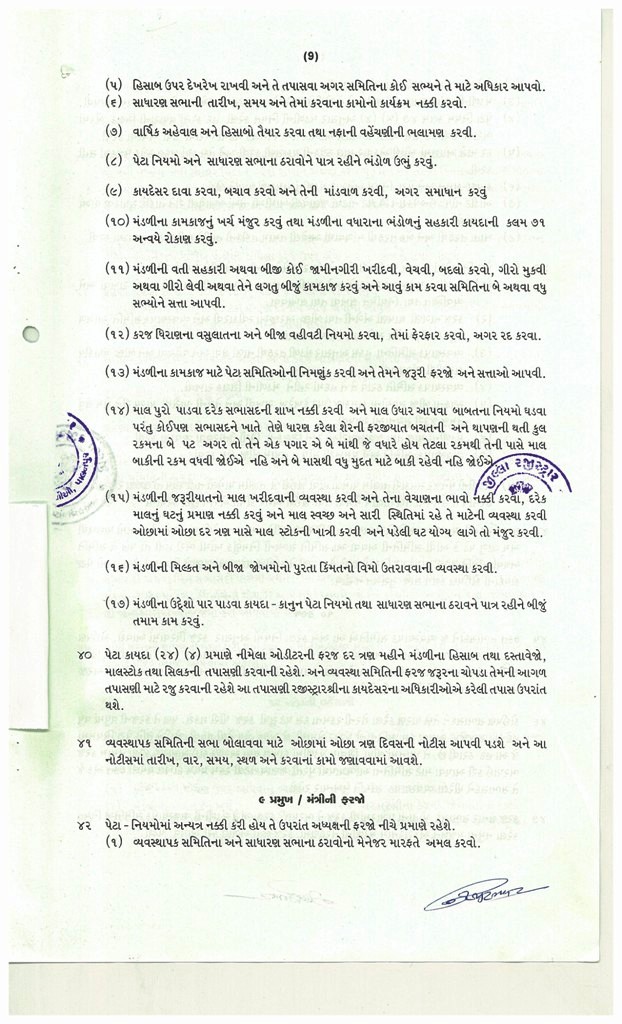 (9)
(૫) હિસાબ ઉપર દેખરેખ રાખવી અને તે તપાસવા અગર સમિતિના કોઈ સભ્યને તે માટે અધિકાર આપવો.
(૬) સાધારણ સભાની તારીખ, સમય અને તેમાં કરવાના કામોનો કાર્યક્રમ નક્કી કરવો.
(૭) વાર્ષિક અહેવાલ અને હિસાબો તૈયાર કરવા તથા નફાની વહેંચણીની ભલામણ કરવી.
(૮) પેટા નિયમો અને સાધારણ સભાના ઠરાવોને પાત્ર રહીને ભંડોળ ઉભું કરવું.
(૯) કાયદેસર દાવા કરવા, બચાવ કરવો અને તેની માંડવાળ કરવી, અગર સમાધાન કરવું
(૧૦) મંડળીના કામકાજનું ખર્ચ મંજુર કરવું તથા મંડળીના વધારાના ભંડોળનું સહકારી કાયદાની કલમ ૭૧
અન્વયે રોકાણ કરવું.
(૧૧) મંડળીની વતી સહકારી અથવા બીજી કોઈ જામીનગીરી ખરીદવી, વેચવી, બદલો કરવો, ગીરો મુકવી
અથવા ગીરો લેવી અથવા તેને લગતુ બીજું કામકાજ કરવું અને આવું કામ કરવા સમિતિના બે અથવા વધુ
સભ્યોને સત્તા આપવી.
(૧૨) કરજ ધિરાણના વસુલાતના અને બીજા વહીવટી નિયમો કરવા, તેમાં ફેરફાર કરવો, અગર રદ કરવા.
(૧૩) મંડળીના કામકાજ માટે પેટા સમિતિઓની નિમણુંક કરવી અને તેમને જરૂરી ફરજો અને સત્તાઓ આપવી.
(૧૪) માલ પુરો પાડવા દરેક સભાસદની શાખ નક્કી કરવી અને માલ ઉધાર આપવા બાબતના નિયમો ઘડવા
પરંતુ કોઈપણ સભાસદને ખાતે તેણે ધારણ કરેલા શેરની ફરજીયાત બચતની અને થાપણની થતી કુલ
રકમના બે પટ અગર તો તેને એક પગાર એ બે માંથી જે વધારે હોય તેટલા રકમથી તેની પાસે માલ
બાકીની રકમ વધવી જોઈએ નહિ અને બે માસથી વધુ મુદત માટે બાકી રહેવી નહિ જોઈએ
જીલ્લા રજીસ્ટ્રાર
(૧૫) મંડળીની જરૂરીયાતનો માલ ખરીદવાની વ્યવસ્થા કરવી અને તેના વેચાણના ભાવો નક્કી કરવા, દરેક
માલનું ઘટનું પ્રમાણ નક્કી કરવું અને માલ સ્વચ્છ અને સારી સ્થિતિમાં રહે તે માટેની વ્યવસ્થા કરવી
ઓછામાં ઓછા દર ત્રણ માસે માલ સ્ટોકની ખાત્રી કરવી અને પડેલી ઘટ યોગ્ય લાગે તો મંજુર કરવી.
(૧૬) મંડળીની મિલ્કત અને બીજા જોખમોનો પુરતા કિંમતનો વિમો ઉતરાવવાની વ્યવસ્થા કરવી.
(૧૭) મંડળીના ઉદ્દેશો પાર પાડવા કાયદા - કાનુન પેટા નિયમો તથા સાધારણ સભાના ઠરાવને પાત્ર રહીને બીજું
તમામ કામ કરવું.
૪૦ પેટા કાયદા (૨૪) (૪) પ્રમાણે નીમેલા ઓડીટરની ફરજ દર ત્રણ મહીને મંડળીના હિસાબ તથા દસ્તાવેજો,
માલસ્ટોક તથા સિલકની તપાસણી કરવાની રહેશે. અને વ્યવસ્થા સમિતિની ફરજ જરૂરના ચોપડા તેમની આગળ
તપાસણી માટે રજુ કરવાની રહેશે આ તપાસણી રજીસ્ટ્રારશ્રીના કાયદેસરના અધિકારીઓએ કરેલી તપાસ ઉપરાંત
થશે.
૪૧ વ્યવસ્થાપક સમિતિની સભા બોલાવવા માટે ઓછામાં ઓછા ત્રણ દિવસની નોટીસ આપવી પડશે અને આ
નોટીસમાં તારીખ, વાર, સમય, સ્થળ અને કરવાનાં કામો જણાવવામાં આવશે.
૯ પ્રમુખ / મંત્રીની ફરજો
૪૨ પેટા - નિયમોમાં અન્યત્ર નક્કી કરી હોય તે ઉપરાંત અધ્યક્ષની ફરજો નીચે પ્રમાણે રહેશે.
(૧) વ્યવસ્થાપક સમિતિના અને સાધારણ સભાના ઠરાવોનો મેનેજર મારફતે અમલ કરવો.